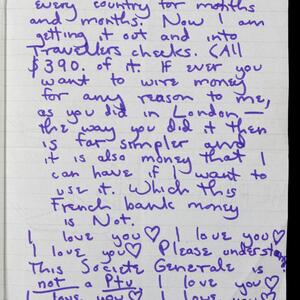 every country for months
and months. Now I am
getting it out and into
Travellers checks. (All
$390. of it. If ever you
want to wire money
for any reason to me,
as you did in London —
the way you did it then
is far simpler and
it is also money that I
can have if I want to
use it. Which this
French bank money
is Not.
I love you♡ I love you♡
I love you♡ Please understand
This Societe Generale is
not a
I love you♡ I love you♡